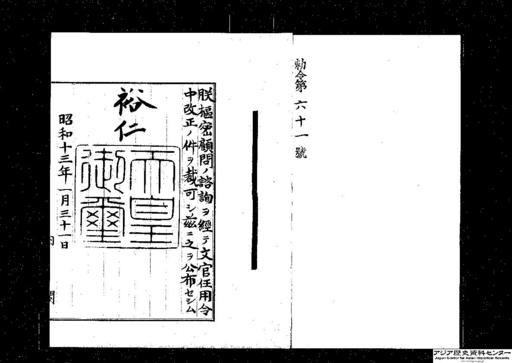 勅令第六十一號
朕樞密顧問ノ諮詢ヲ經テ文官任用令
中改正ノ件ヲ裁可シ茲ニ之ヲ公布セシム
裕仁
天皇御璽
昭和十三年一月三十一日
内閣
アジア歴史資料センター
Japan Center for Asian Historical Records